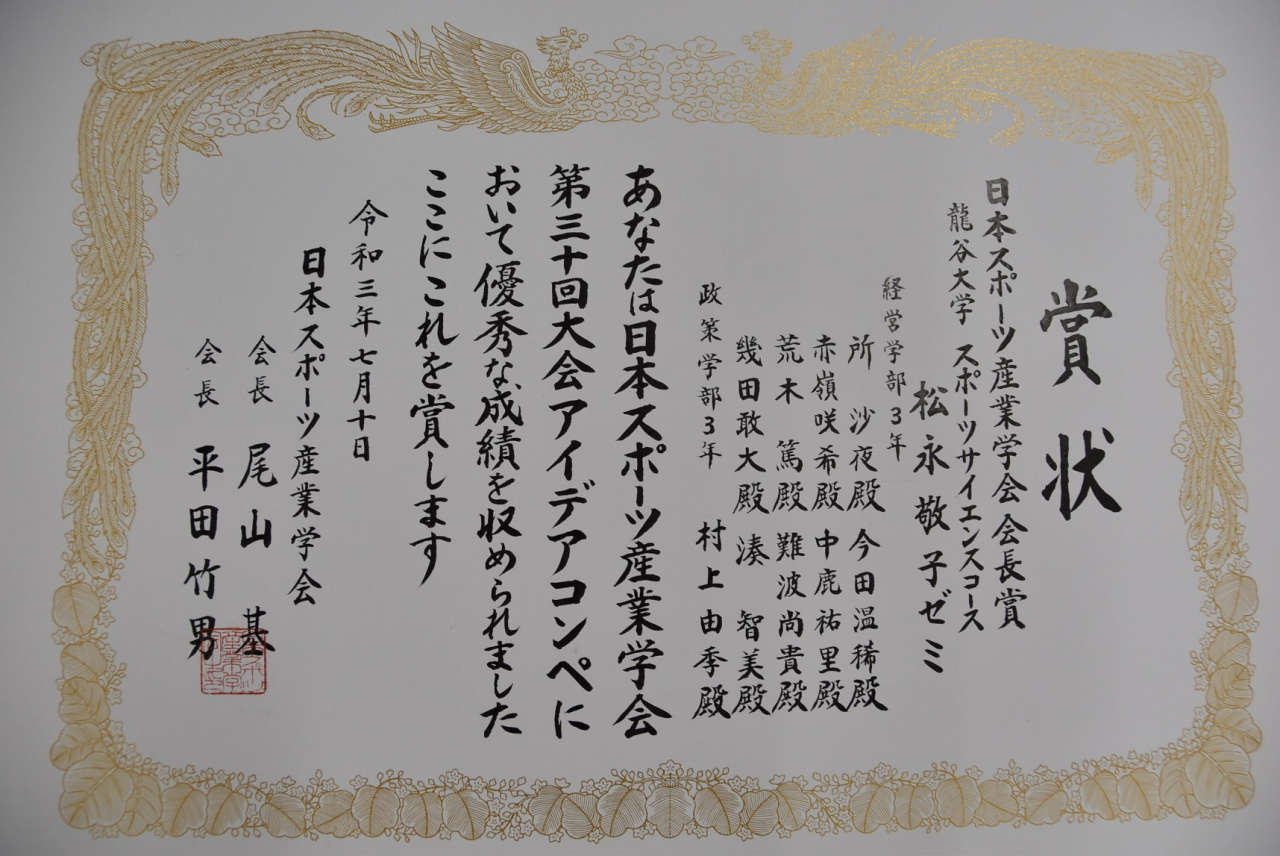 賞状
日本スポーツ産業学会会長賞
龍谷大学 スポーツサイエンスコース
松永敬子ゼミ
経営学部3年
所 沙夜殿 今田温稀殿
赤嶺咲希殿 中鹿祐里殿
荒木 篤殿 難波尚貴殿
幾田敢大殿 湊 智美殿
政策学部3年 村上由季殿
あなたは日本スポーツ産業学会
第三十回大会アイデアコンペに
おいて優秀な成績を収められました
ここにこれを賞します
令和三年七月十日
日本スポーツ産業学会
会長 尾山 基
会長 平田竹男